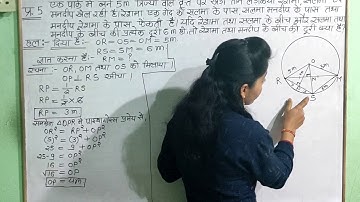 प्र. 5 एक पार्क में बने 5m त्रिज्या वाले वृत्त पर खड़ी तीन लड़कियाँ रेशमा, सलमा एवं
मनदीप खेल रही हैं। रेशमा एक गेंद को सलमा के पास सलमा मनदीप के पास तथा
मनदीप रेशमा के पास फेंकती है। यदि रेशमा तथा सलमा के बीच और सलमा तथा
मनदीप के बीच की प्रत्येक दूरी 6 m हो तो रेशमा और मनदीप के बीच की दूरी क्या है?
हल:- दिया है:- OR = OS = OM = 5m
RS = SM = 6 m
ज्ञात करना है:- RM = ?
रचना:- OR, OM तथा OS को मिलाया।
OP ⊥ RS खींचा
RP = 1/2 RS
RP = 1/2 × 6
RP = 3 m
समकोण ΔOPR में पाइथागोरस प्रमेय से
OR² = RP² + OP²
(5)² = (3)² + OP²
25 = 9 + OP²
25-9 = OP²
16 = OP²
√16 = OP
OP = 4m
R
M
S